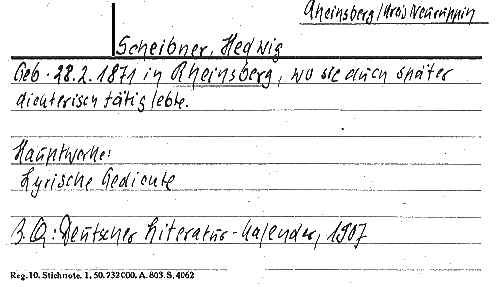 Rheinsberg/Kreis Neuruppin
Scheibner, Hedwig
Geb. 28.2.1871 in Rheinsberg, wo sie auch später
dichterisch tätig lebte.
Hauptwerke:
Lyrische Gedichte
B.Q.: Deutscher Literatur-Kalender, 1907
Reg. 10. Stichnote. 1. 50.732000. A. 803. S. 4062